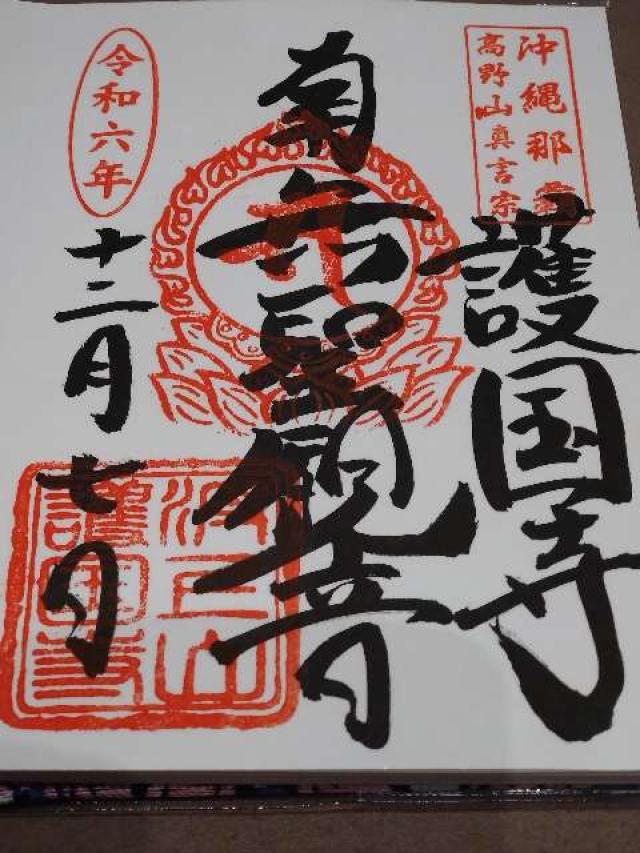 沖縄那覇
高野山真言宗
護国寺
南無聖観音
令和六年
十二月七日
波上山
護国寺